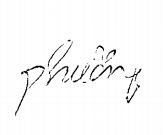 phưởng